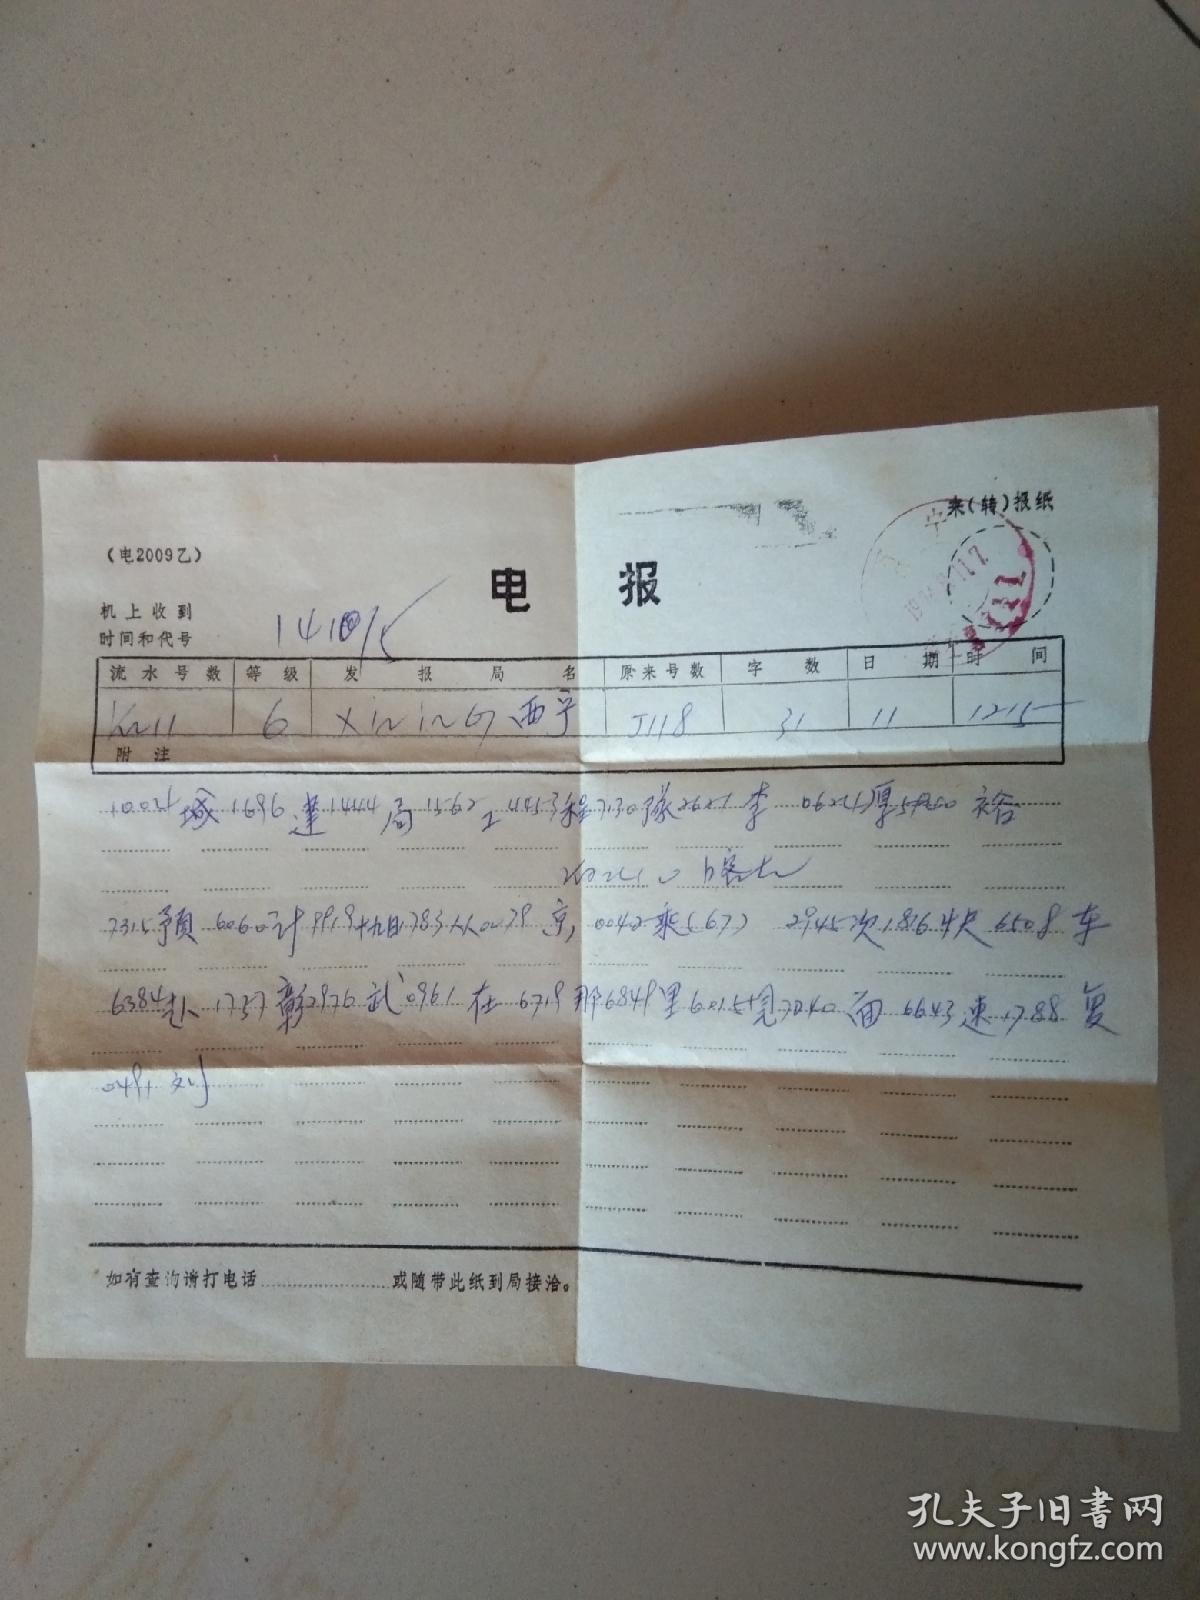 来(转)报纸
(电2009乙)
电 报
机上收到
时间和代号
1410/5
流水号数 等级 发报局名 原来号数 字数 日期 时间
6 XINING 西宁 J118 31 11 1215
附注
城 1696 建 1444 局 1562 工 4453 程 7130 隊 2621 李 厚 裕
7315 预 6060 计 9919 十九日 0079 京, 0042 乘(67) 2945 次 1816 尺 6508 车
6384 赴 1757 彰 2976 武 0961 在 6719 那 6849 里 6015 見 7240 面 6643 速 1788 复
0491 刘
如有查询请打电话 或随带此纸到局接洽。
孔夫子旧书网
www.kongfz.com